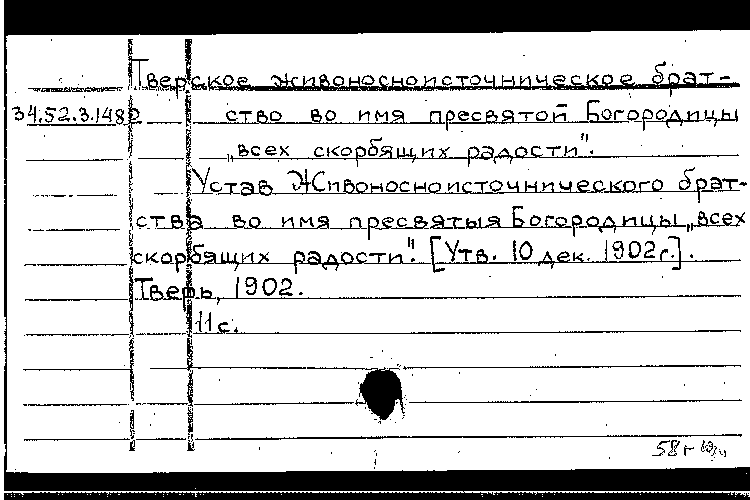 Тверское живоносноисточническое брат-
34.52.3.148 ство во имя пресвятой Богородицы
„всех скорбящих радости".
Устав Живоносноисточнического брат-
ства во имя пресвятыя Богородицы „всех
скорбящих радости". [Утв. 10 дек. 1902 г.].
Тверь, 1902.
11 с.
58 г